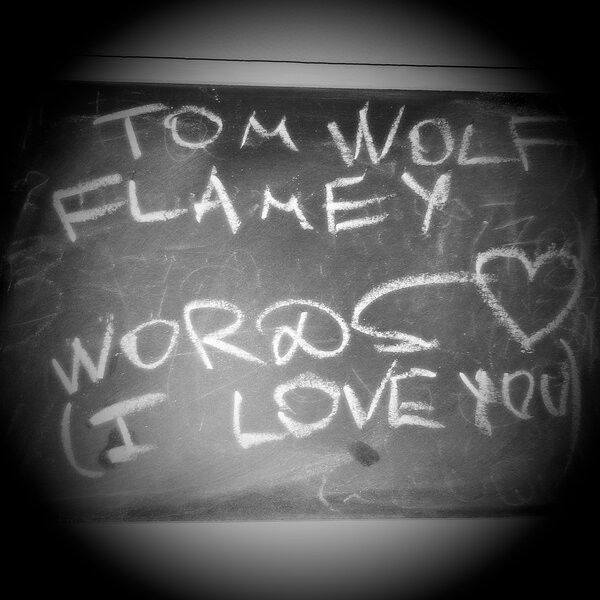 TOM WOLF
FLAMEY
WORDS ♡
(I LOVE YOU)